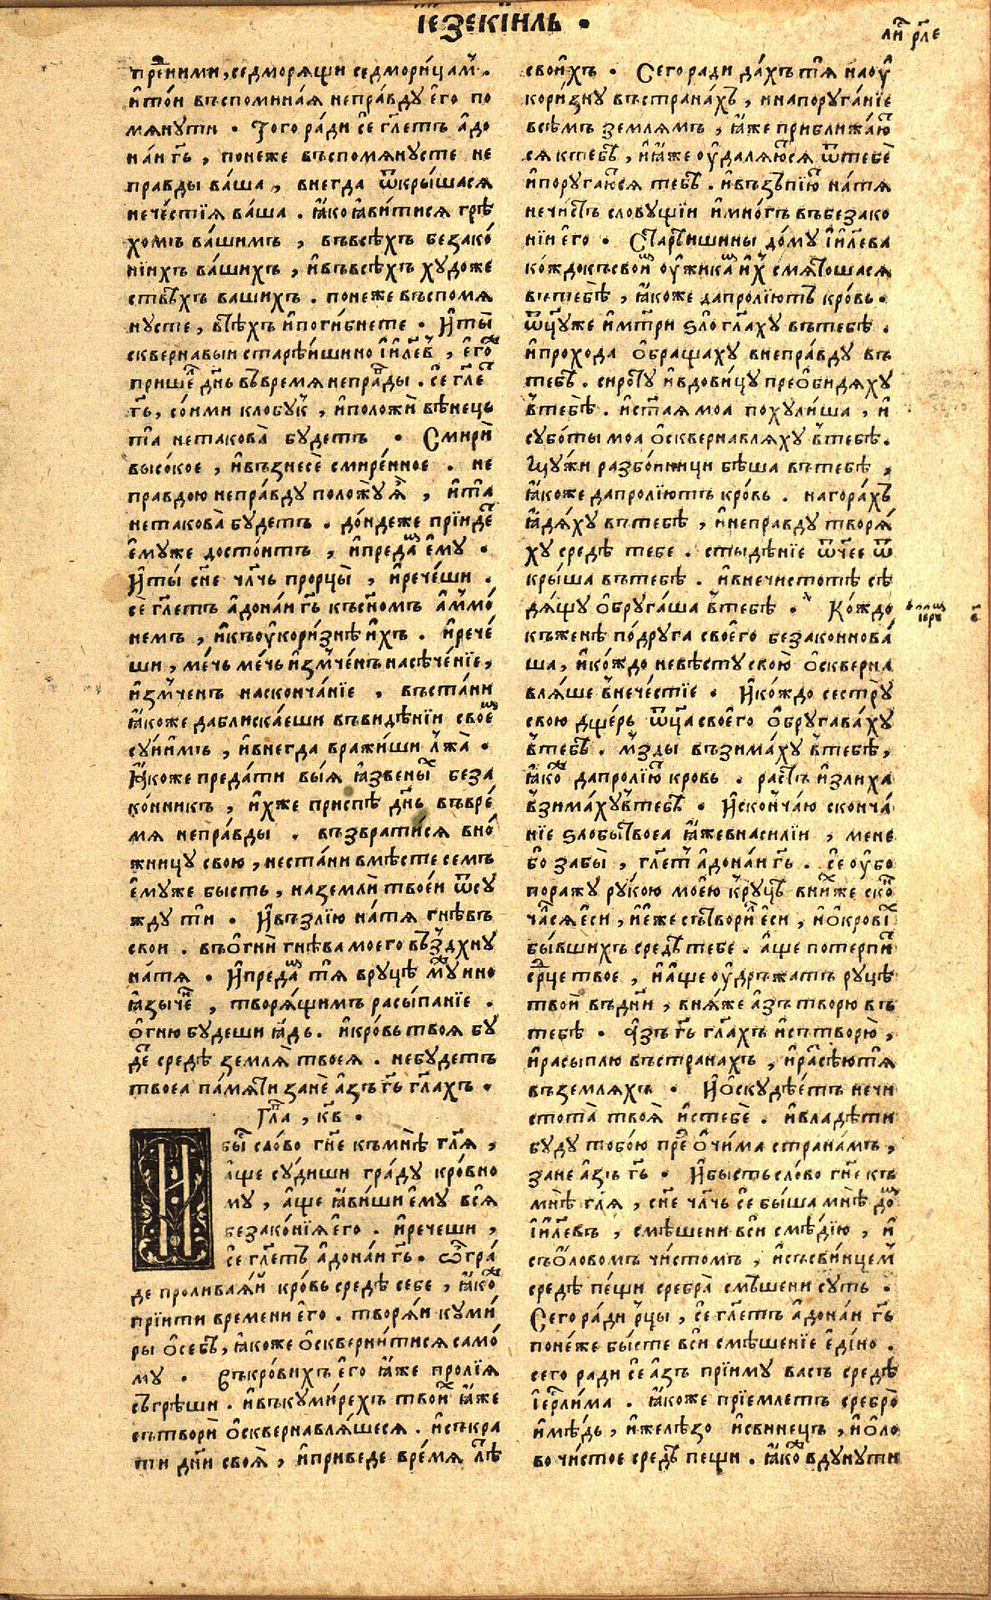 їєзекїиль .
ли́ рл҃е
пре́ними, седморѧщи седмори́цам .
и҆то́и въспомина́ѧ непра́вду є҆го̀ по
мѧнути . Того ра́ди сѐ гл҃етъ а҆до
на́и гь҃ , понеже въспомѧнусте не
правды ва́ша , внегда ѿкры́шасѧ
нече́стїѧ ва́ша . ꙗ҆ко ꙗ҆ви́тисѧ грѣ
хомъ ва́шимъ , въвсѣ́хъ безако́
нїихъ ва́шихъ , и҆въвсѣ́хъ художе
ствѣхъ вашихъ . понеже въспомѧ
нусте, въѣхъ и҆поги́бнете . И҆ты̀
сквернавыи старѣ́ишино і҆и҃левъ , є҆го́
прише́ дн҃ь въвремѧ непра́ды . сѐ гл҃е
гь҃, со́ими клобу́к , и҆положѝ вѣне́ць
та̀ нетакова̀ будетъ . Смирѝ
высо́кое , и҆възнесѐ смире́нное . не
правдою непра́вду положу̀ ꙗ҆̀ , и҆та̀
нетакова̀ будетъ . до́ндеже прїи́де
є҆муже досто́итъ , и҆преда́м є҆му .
И҆ты̀ сн҃е чл҃чь прорцы̀ , и҆рече́ши .
сѐ гл҃етъ а҆дона́и гь҃ късн҃омъ а҆ммо́
немъ , и҆къу҆кори́знѣ и҆́хъ . и҆рече́
ши, ме́чь ме́чь и҆змче́нъ насѣче́нїе,
и҆змче́нъ насконча́нїе , въста́ни
ꙗ҆коже даблиска́еши въвидѣ́нїи свое́м
су́нимъ , и҆внегда вражи́ши лжа̀ .
Ꙗ҆коже преда́ти вы́ѧ ꙗ҆звены́х беза
ко́нникъ , и҆́хже приспѣ̀ дн҃ь въвре́
мѧ непра́вды . възврати́сѧ вно́
жницу свою , неста́ни вмѣсте семъ
є҆муже бысть, наземлѝ твое́и ѿсу
жду ти . И҆възлїю на́тѧ гнѣвъ
свои . въѻ҆гнѝ гнѣ́ва моего въздхну
на́тѧ . И҆преда́м тѧ вруцѣ̀ му́жии но
ꙗ҆зыче , творѧ́щимъ расы́панїе .
ѻ҆гню будеши ꙗ҆́дь. и҆кро́вь твоѧ бу
де средѣ̀ землѧ̀ твоеѧ . небудетъ
твоеа па́мѧти занѐ а҆зъ гь҃ гл҃ахъ .
Гл҃а , к҃в .
бы́ сло́во гн҃е къмнѣ̀ гл҃ѧ ,
а҆ще су́диши гра́ду кро́вно
му , а҆ще ꙗ҆ви́ши є҆му всѧ̀
безако́нїѧ є҆го . и҆речеши ,
сѐ гл҃етъ а҆дона́и гь҃ . ѽ гра́
де пролива́ѧи кро́вь средѣ̀ себе , ꙗ҆ко
прїити времени є҆го . творѧ́и куми́
ры ѻ҆себѣ̀, ꙗ҆коже ѻ҆скверни́тисѧ само́
му . Въкро́вихъ є҆го ꙗ҆́же пролїѧ
съгрѣши . и҆въкуми́рехъ твои́х ꙗ҆́же
сътворѝ ѻ҆сквернавлѧ́шесѧ . и҆съкра
ти дн҃и своѧ̀ , и҆приведе вре́мѧ лѣ́
свои́хъ . Сего ра́ди да́хъ тѧ̀ наѹ҆
кори́зну въстрана́хъ , и҆напоруга́нїе
всѣ́мъ землѧ́мъ , ꙗ҆́же приближа́ю
сѧ ктебѣ̀ , и҆ꙗ҆́же ѹ҆далѧ́юсѧ ѿтебѐ
и҆поруга́ксѧ тебѣ̀ . и҆възъпїю̀ на́тѧ
нечи́стъ словущїи и҆мно́гъ въбезако
нїи є҆го . Старѣ́ишины до́му і҆и҃лева
ко́ждокъсвои́м ѹ҆́жикам и҆́х смѧто́шасѧ
вътебѣ̀ , ꙗ҆коже дапролїютъ кро́вь .
ѿц҃у́же и҆мт҃ри ѕло̀ гл҃аху вътебѣ̀ .
и҆прохода ѻ҆браща́ху внепра́вду въ
тебѣ̀ . сироту̀ и҆вдови́цу преѻ҆бидѧ́ху
втебѣ̀ . и҆ст҃аѧ моа похули́ша , и҆
субо́ты моа ѻ҆сквернавлѧ́ху втебѣ̀ .
Му́жи разбо́иници бѣ́ша вътебѣ̀ ,
ꙗ҆коже дапролїю́тъ кро́вь . нагора́хъ
ꙗ҆дѧ́ху вътебѣ̀ , и҆неправду творѧ́
ху средѣ̀ тебе . стыдѣ́нїе ѿчее ѿ
кры́ша вътебѣ̀ . и҆внечистотѣ̀ сѣ
дѧ́щу ѻ҆бруга́ша втебѣ̀ . Ко́ждо
къженѣ̀ по́друга своего безаконнова́
ша, и҆ко́ждо невѣ́сту свою̀ ѻ҆скверна
влѧше внече́стїе . И҆ко́ждо сестру̀
свою дще́рь ѿц҃а своего ѻ҆бругава́ху
втебѣ̀ . мзды̀ възима́ху втебѣ̀,
ꙗ҆ко дапролїю кровь . ра́стъ и҆злиха
взима́хувтебѣ̀ . И҆сконча́ю сконча́
нїе ѕло́бы твоеа ꙗ҆́жевнаси́лїи , мене
бо забы̀ , гл҃етъ а҆дона́и гь҃ . сѐ ѹ҆бо
поражу руко́ю мое́ю кру́цѣ вни́хже ско
ча́сѧ є҆си , и҆́еже сътвори́л є҆си , и҆ѻ҆крови́х
бы́вшихъ средѣ̀ тебе . а҆ще потерпи́т
ср҃це твое , и҆а҆ще ѹ҆дръжатъ руцѣ̀
твоѝ въдни́ , внѧ́же а҆́зъ творю въ
тебѣ̀ . А҆́зъ гь҃ гл҃ахъ и҆сътворю̀ ,
и҆расы́плю въстранахъ , и҆расѣ́ютѧ
въземлѧ́хъ . И҆ѻ҆скудѣ́етъ нечи
стота̀ твоѧ̀ и҆стебѐ . и҆владѣ́ти
буду тобою пре́ ѻ҆чи́ма страна́мъ ,
занѐ а҆́зъ гь҃ . И҆бысть сло́во гн҃е къ
мнѣ̀ гл҃ѧ , сн҃е чл҃чь сѐ бы́ша мнѣ̀ до́м
і҆и҃левъ , смѣ́шени всѝ смѣ́дїю , и҆
съѻ҆́ловомъ чи́стомъ , и҆съсви́нцем
средѣ̀ пе́щи сребра̀ смѣ́шени су́ть .
Сего ра́ди рцы̀ , сѐ гл҃етъ а҆дона́и гь҃
понеже бы́сте всѝ смѣше́нїе є҆ди́но .
сего ради сѐ а҆́зъ прїиму васъ средѣ̀
і҆ер҃ли́ма . ꙗ҆коже прїемлетъ сребро̀
и҆мѣ́дь , и҆желѣ́зо и҆сви́нець , и҆ѻ҆́ло
во чи́стое средѣ̀ пещи . ꙗ҆ко вдунути